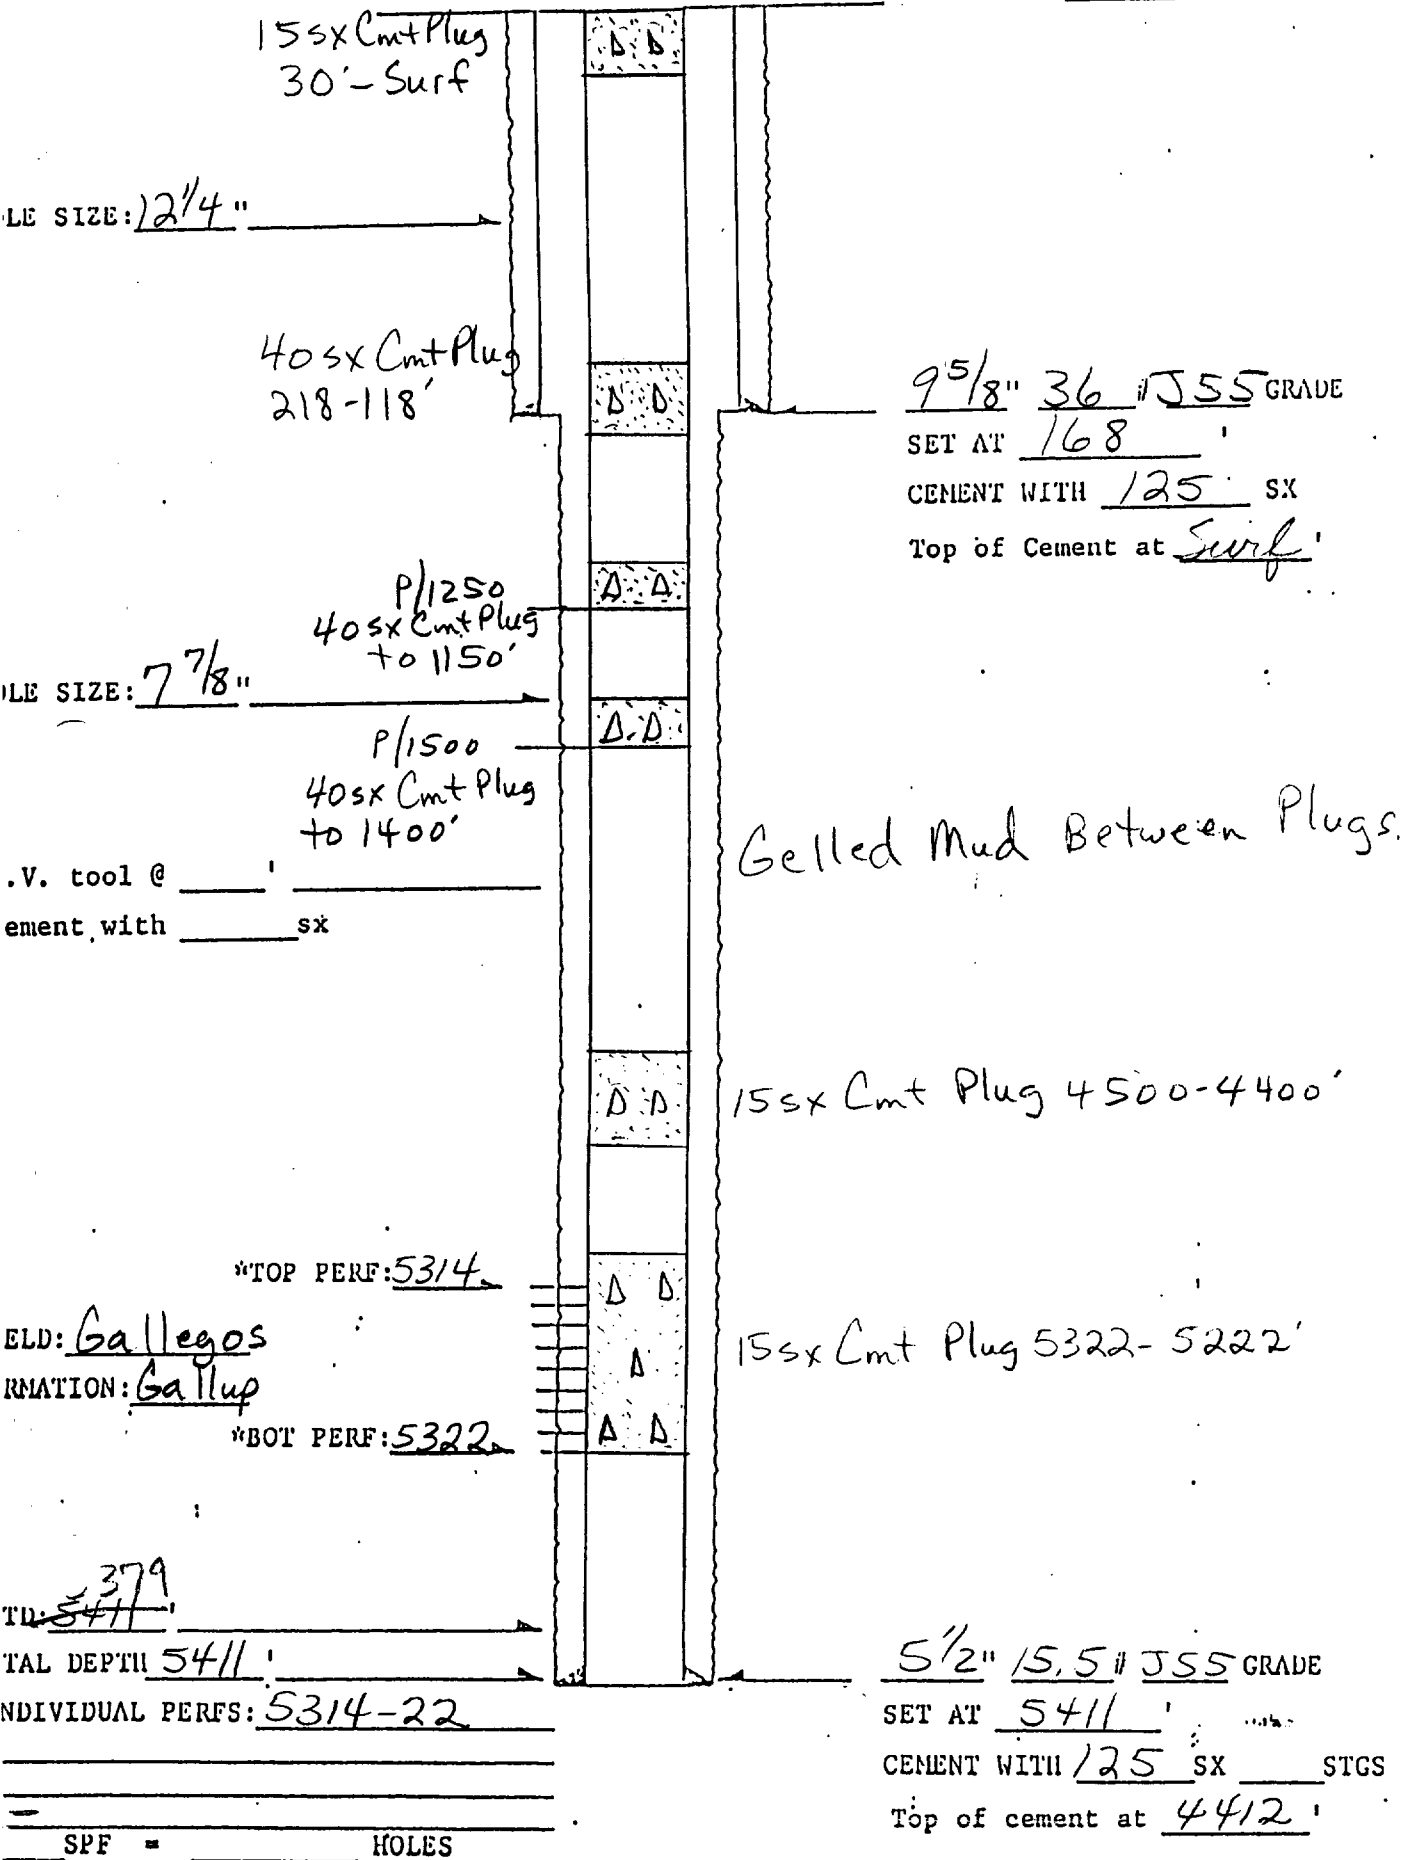 15sx Cmt Plug
30'-Surf
LE SIZE: 12 1/4 "
40 sx Cmt Plug
218-118'
9 5/8" 36 # J55 GRADE
SET AT 168 '
CEMENT WITH 125 SX
Top of Cement at Surf '
P/1250
40 sx Cmt Plug
to 1150'
LE SIZE: 7 7/8"
P/1500
40 sx Cmt Plug
to 1400'
Gelled Mud Between Plugs.
.V. tool @ ____ '
ement with ____ sx
15sx Cmt Plug 4500-4400'
*TOP PERF: 5314
ELD: Gallegos
RMATION: Gallup
15sx Cmt Plug 5322-5222'
*BOT PERF: 5322
379
TD: 5411 '
TAL DEPTH 5411 '
NDIVIDUAL PERFS: 5314-22
5 1/2" 15.5 # J55 GRADE
SET AT 5411 '
CEMENT WITH 125 SX ____ STGS
Top of cement at 4412 '
SPF = ____ HOLES